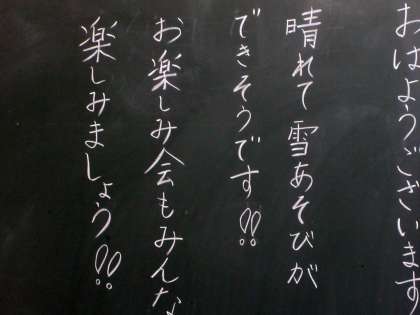 おはようございます
晴れて雪あそびが
できそうです!!
お楽しみ会もみんな
楽しみましょう!!